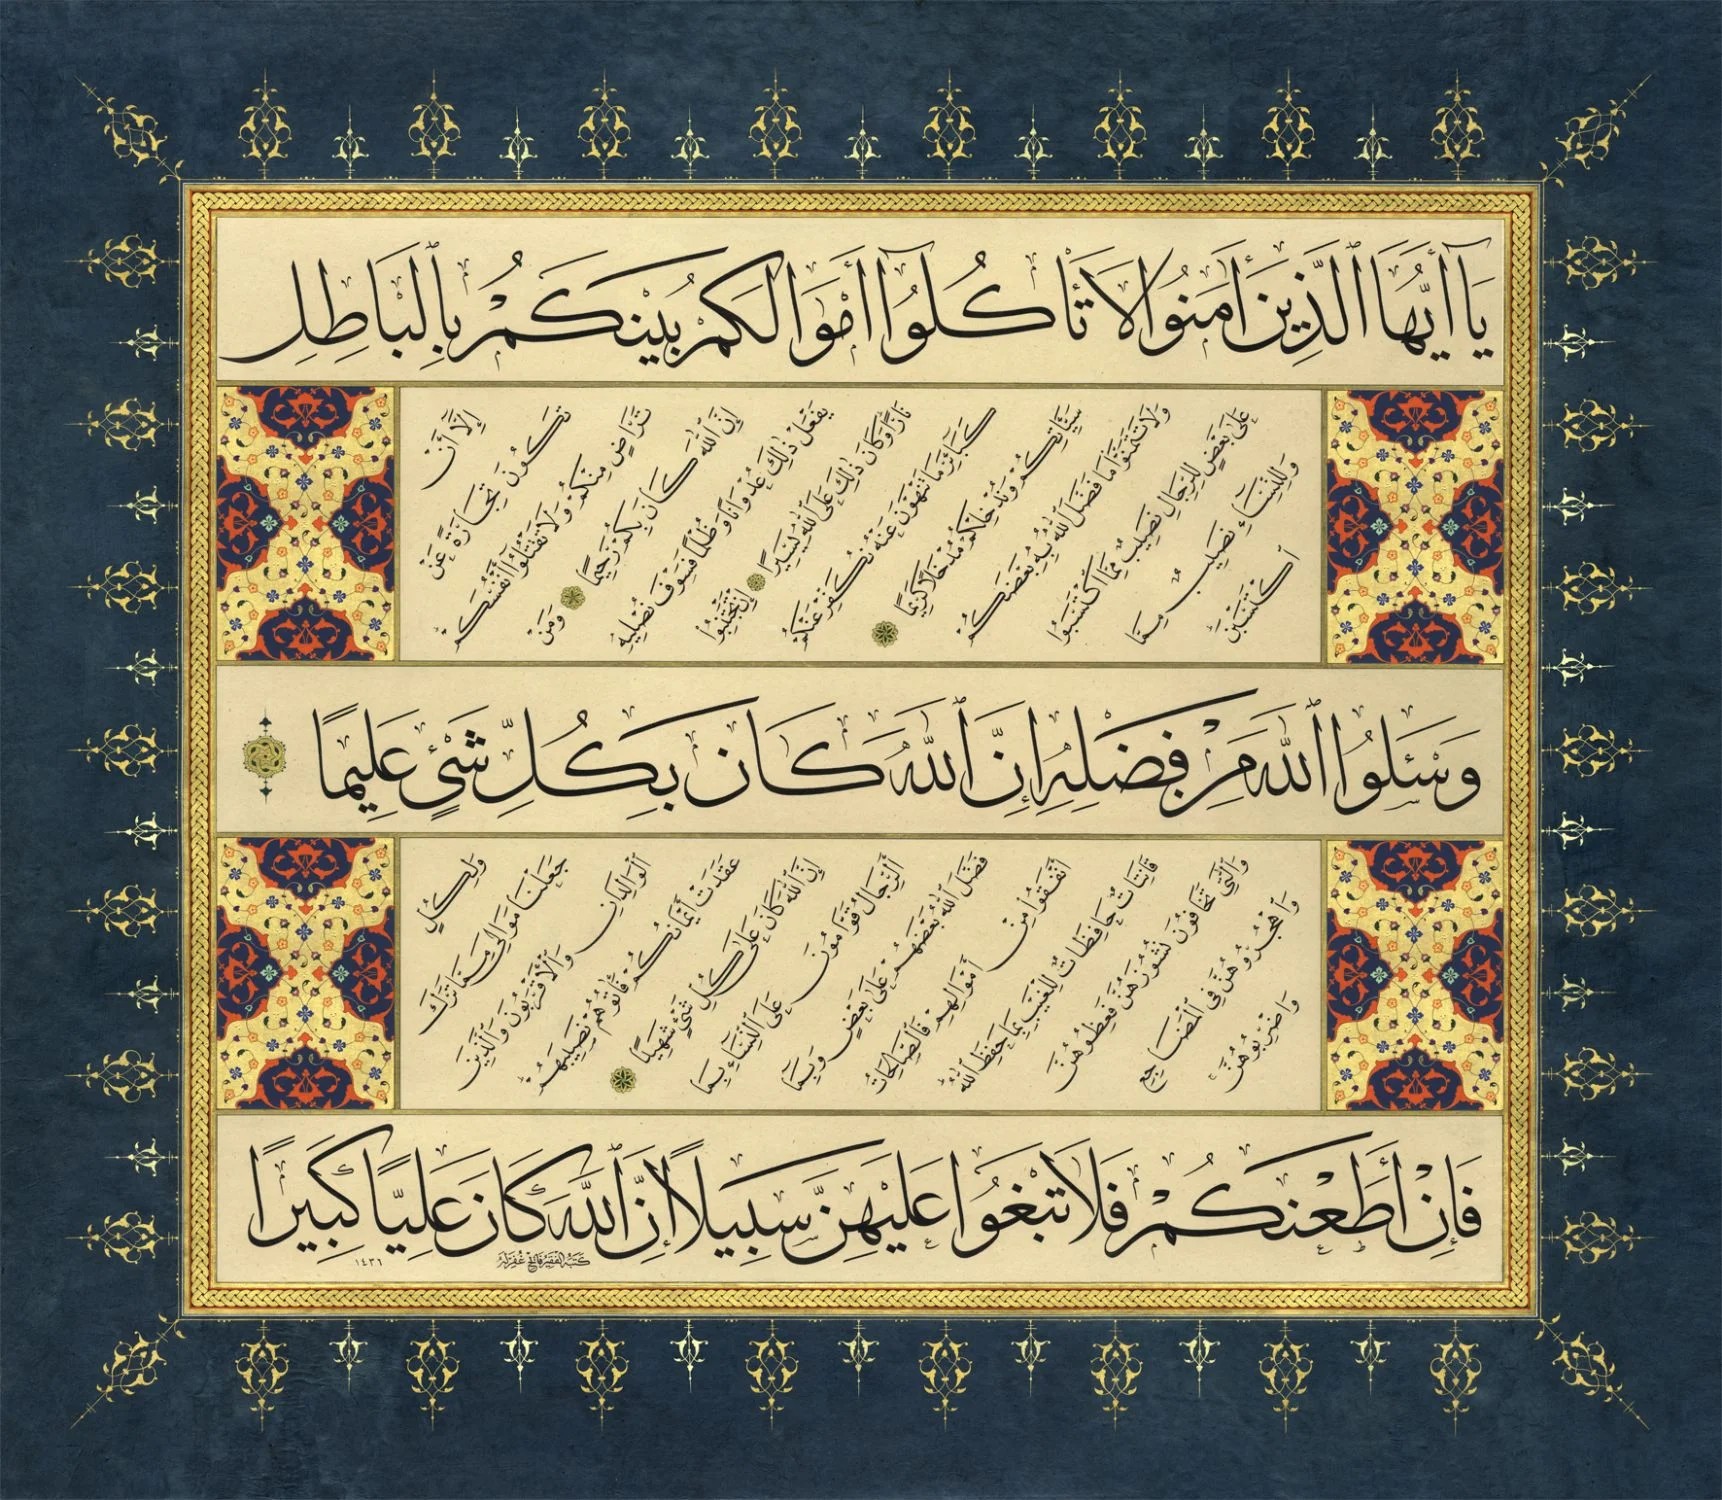 يَا أَيُّهَا ٱلَّذِينَ اٰمَنُوا لَا تَأْكُلُوٓا أَمْوَالَكُمْ بَيْنَكُمْ بِالْبَاطِلِ
إِلَّآ أَنْ
تَكُونَ تِجَارَةً عَنْ
تَرَاضٍ مِنْكُمْ وَلَا تَقْتُلُوٓا أَنْفُسَكُمْ
إِنَّ اللّٰهَ كَانَ بِكُمْ رَحِيمًا وَمَنْ
يَفْعَلْ ذٰلِكَ عُدْوَانًا وَظُلْمًا فَسَوْفَ نُصْلِيهِ
نَارًا وَكَانَ ذٰلِكَ عَلَى اللّٰهِ يَسِيرًا إِنْ تَجْتَنِبُوا
كَبَآئِرَ مَا تُنْهَوْنَ عَنْهُ نُكَفِّرْ عَنْكُمْ
سَيِّئَاتِكُمْ وَنُدْخِلْكُمْ مُدْخَلًا كَرِيمًا
وَلَا تَتَمَنَّوْا مَا فَضَّلَ اللّٰهُ بِهِ بَعْضَكُمْ
عَلَى بَعْضٍ لِلرِّجَالِ نَصِيبٌ مِمَّا اكْتَسَبُوا
وَلِلنِّسَآءِ نَصِيبٌ مِمَّا
ٱكْتَسَبْنَ
وَسْـَٔلُوا اللّٰهَ مِنْ فَضْلِهِ إِنَّ ٱللّٰهَ كَانَ بِكُلِّ شَيْءٍ عَلِيمًا
وَلِكُلٍّ
جَعَلْنَا مَوَالِيَ مِمَّا تَرَكَ
ٱلْوَالِدَانِ وَٱلْأَقْرَبُونَ وَالَّذِينَ
عَقَدَتْ أَيْمَانُكُمْ فَاٰتُوهُمْ نَصِيبَهُمْ
إِنَّ اللّٰهَ كَانَ عَلَى كُلِّ شَيْءٍ شَهِيدًا
ٱلرِّجَالُ قَوَّامُونَ عَلَى النِّسَآءِ بِمَا
فَضَّلَ اللّٰهُ بَعْضَهُمْ عَلَى بَعْضٍ وَبِمَآ
أَنْفَقُوا مِنْ أَمْوَالِهِمْ فَالصَّالِحَاتُ
قَانِتَاتٌ حَافِظَاتٌ لِلْغَيْبِ بِمَا حَفِظَ اللّٰهُ
وَالّٰتِي تَخَافُونَ نُشُوزَهُنَّ فَعِظُوهُنَّ
وَاهْجُرُوهُنَّ فِي الْمَضَاجِعِ
وَاضْرِبُوهُنَّ
فَإِنْ أَطَعْنَكُمْ فَلَا تَبْغُوا عَلَيْهِنَّ سَبِيلًا إِنَّ ٱللّٰهَ كَانَ عَلِيًّا كَبِيرًا
كتبه الفقير فاتح غفر له ١٤٣٦